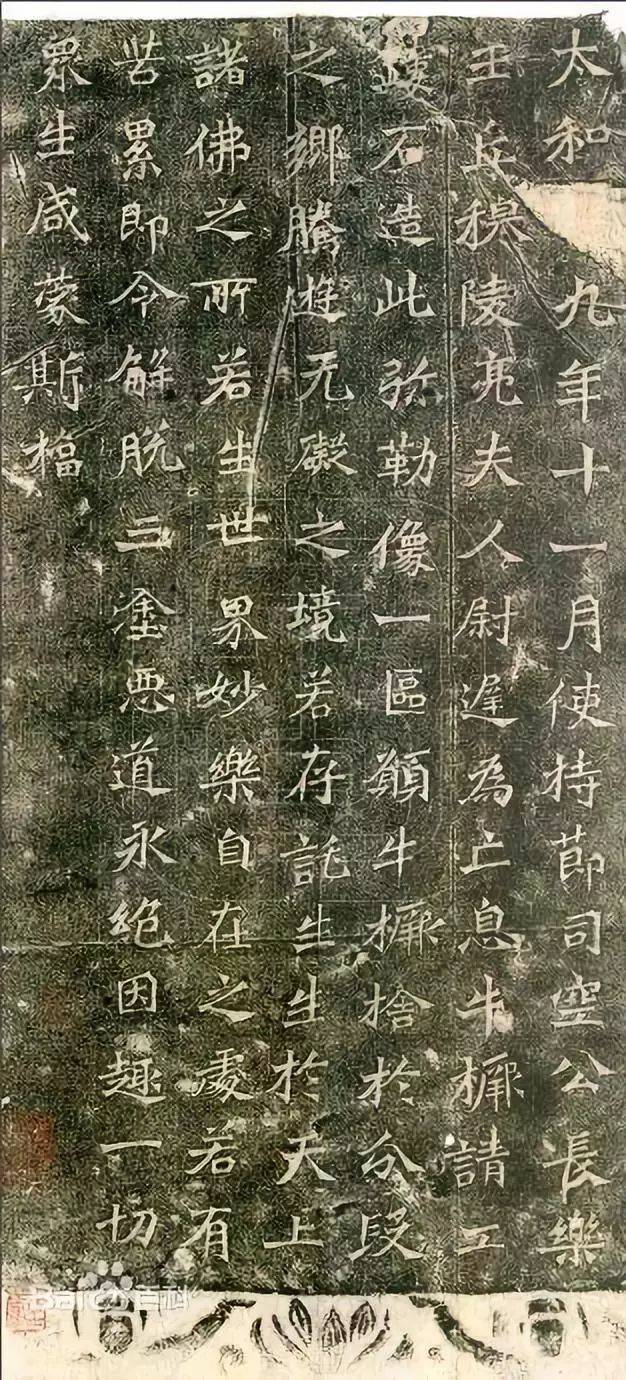 太和九年十一月使持節司空公長樂
王丘穆陵亮夫人尉遲為亡息牛橛請工
鏤石造此弥勒像一區願牛橛捨於分段
之鄉騰遊无礙之境若存託生生於天上
諸佛之所若生世界妙樂自在之處若有
苦累即令解脫三塗惡道永絕因趣一切
眾生咸蒙斯福
Baidu百科